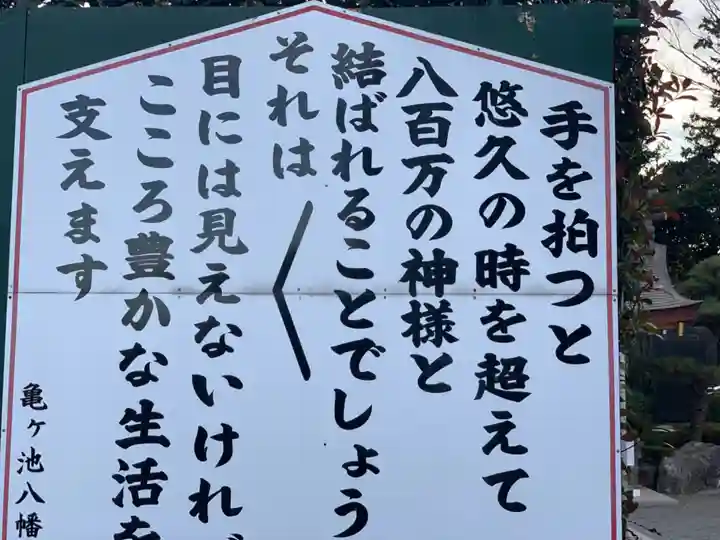 手を拍つと
悠久の時を超えて
八百万の神様と
結ばれることでしょう
それは
目には見えないけれ
こころ豊かな生活を
支えます
亀ヶ池八幡